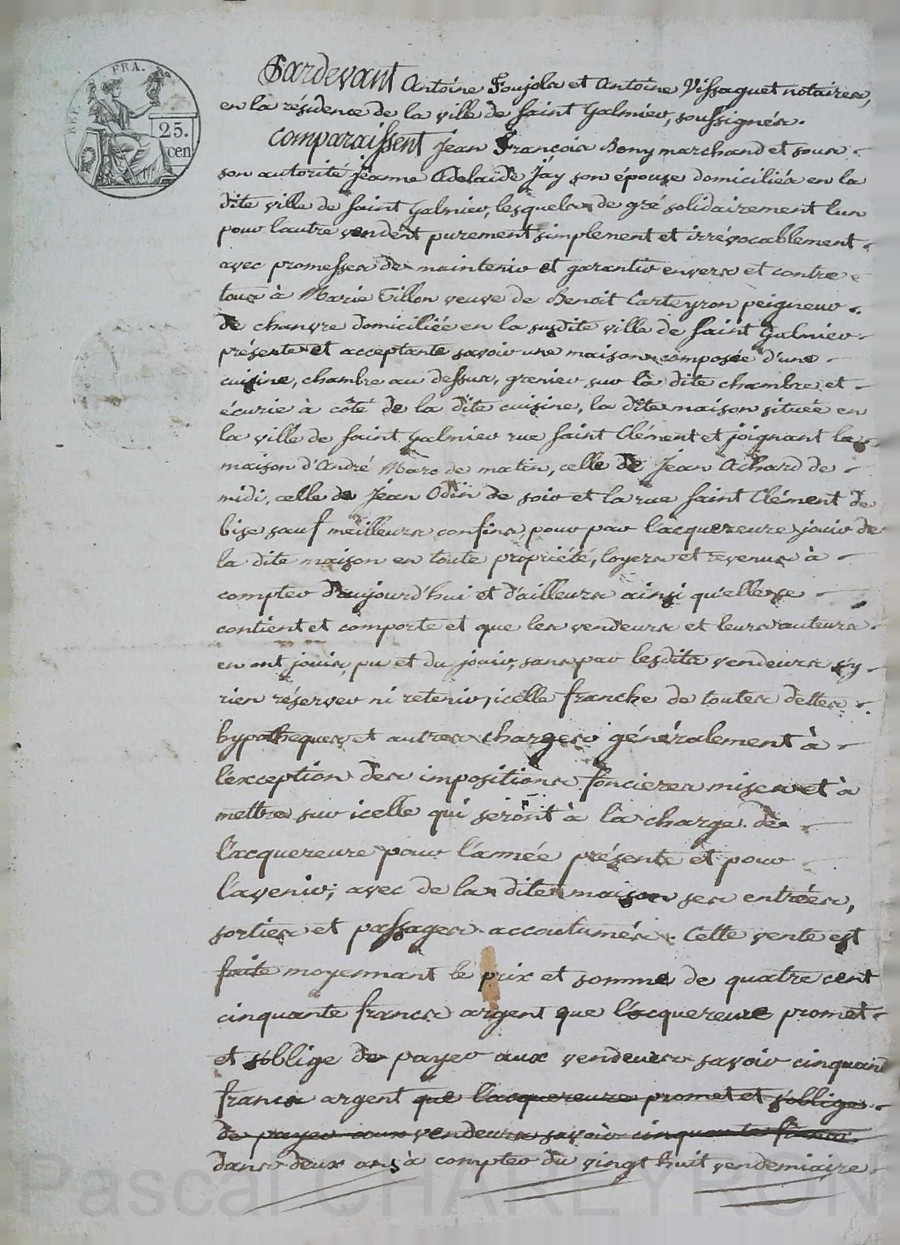 REP. FRA.
25.
cen
Pardevant Antoine Foujols et Antoine Vissaguet notaires,
en la résidence de la ville de Saint Galmier, soussignés.
Comparaissent Jean François Bony marchand et sous
son autorité jeanne Adelaïde Jay son épouse domiciliés en la
dite ville de Saint Galmier, lesquels de gré solidairement l'un
pour l'autre vendent purement simplement et irrévocablement
avec promesses de maintenir et garantir envers et contre
tous à Marie Tillon veuve de Benoit Carteyron peigneur
de chanvre domiciliée en la susdite ville de Saint Galmier
présente et acceptante savoir une maison composée d'une
cuisine, chambre au dessus, grenier sur la dite chambre et
écurie à côté de la dite cuisine, la dite maison située en
la ville de Saint Galmier rue Saint Clément et joignant la
maison d'André Marc de matin, celle de Jean Achard de
midi, celle de Jean Odin de soir et la rue Saint Clément de
bise sauf meilleurs confins, pour par l'acquereure jouir de
la dite maison en toute propriété, loyers et revenus à
compter d'aujourd'hui et d'ailleurs ainsi qu'elle se
contient et comporte et que les vendeurs et leurs auteurs
en ont jouis, pu et du jouir, sans par lesdits vendeurs s'y
rien réserver ni retenir, icelle franche de toutes dettes
hypotheques et autres charges généralement à
l'exception des impositions foncieres mises et à
mettre sur icelle qui seront à la charge de
l'acquereure pour l'année présente et pour
l'avenir; avec de la dite maison ses entrées,
sorties et passages accoutumés. Cette vente est
faite moyennant le prix et somme de quatre cent
cinquante francs argent que l'acquereure promet
et s'oblige de payer aux vendeurs savoir cinquante
francs argent que l'acquereure promet et s'oblige
de payer aux vendeurs savoir cinquante francs
dans deux ans à compter du vingt huit vendemiaire
Pascal CHAREYRON